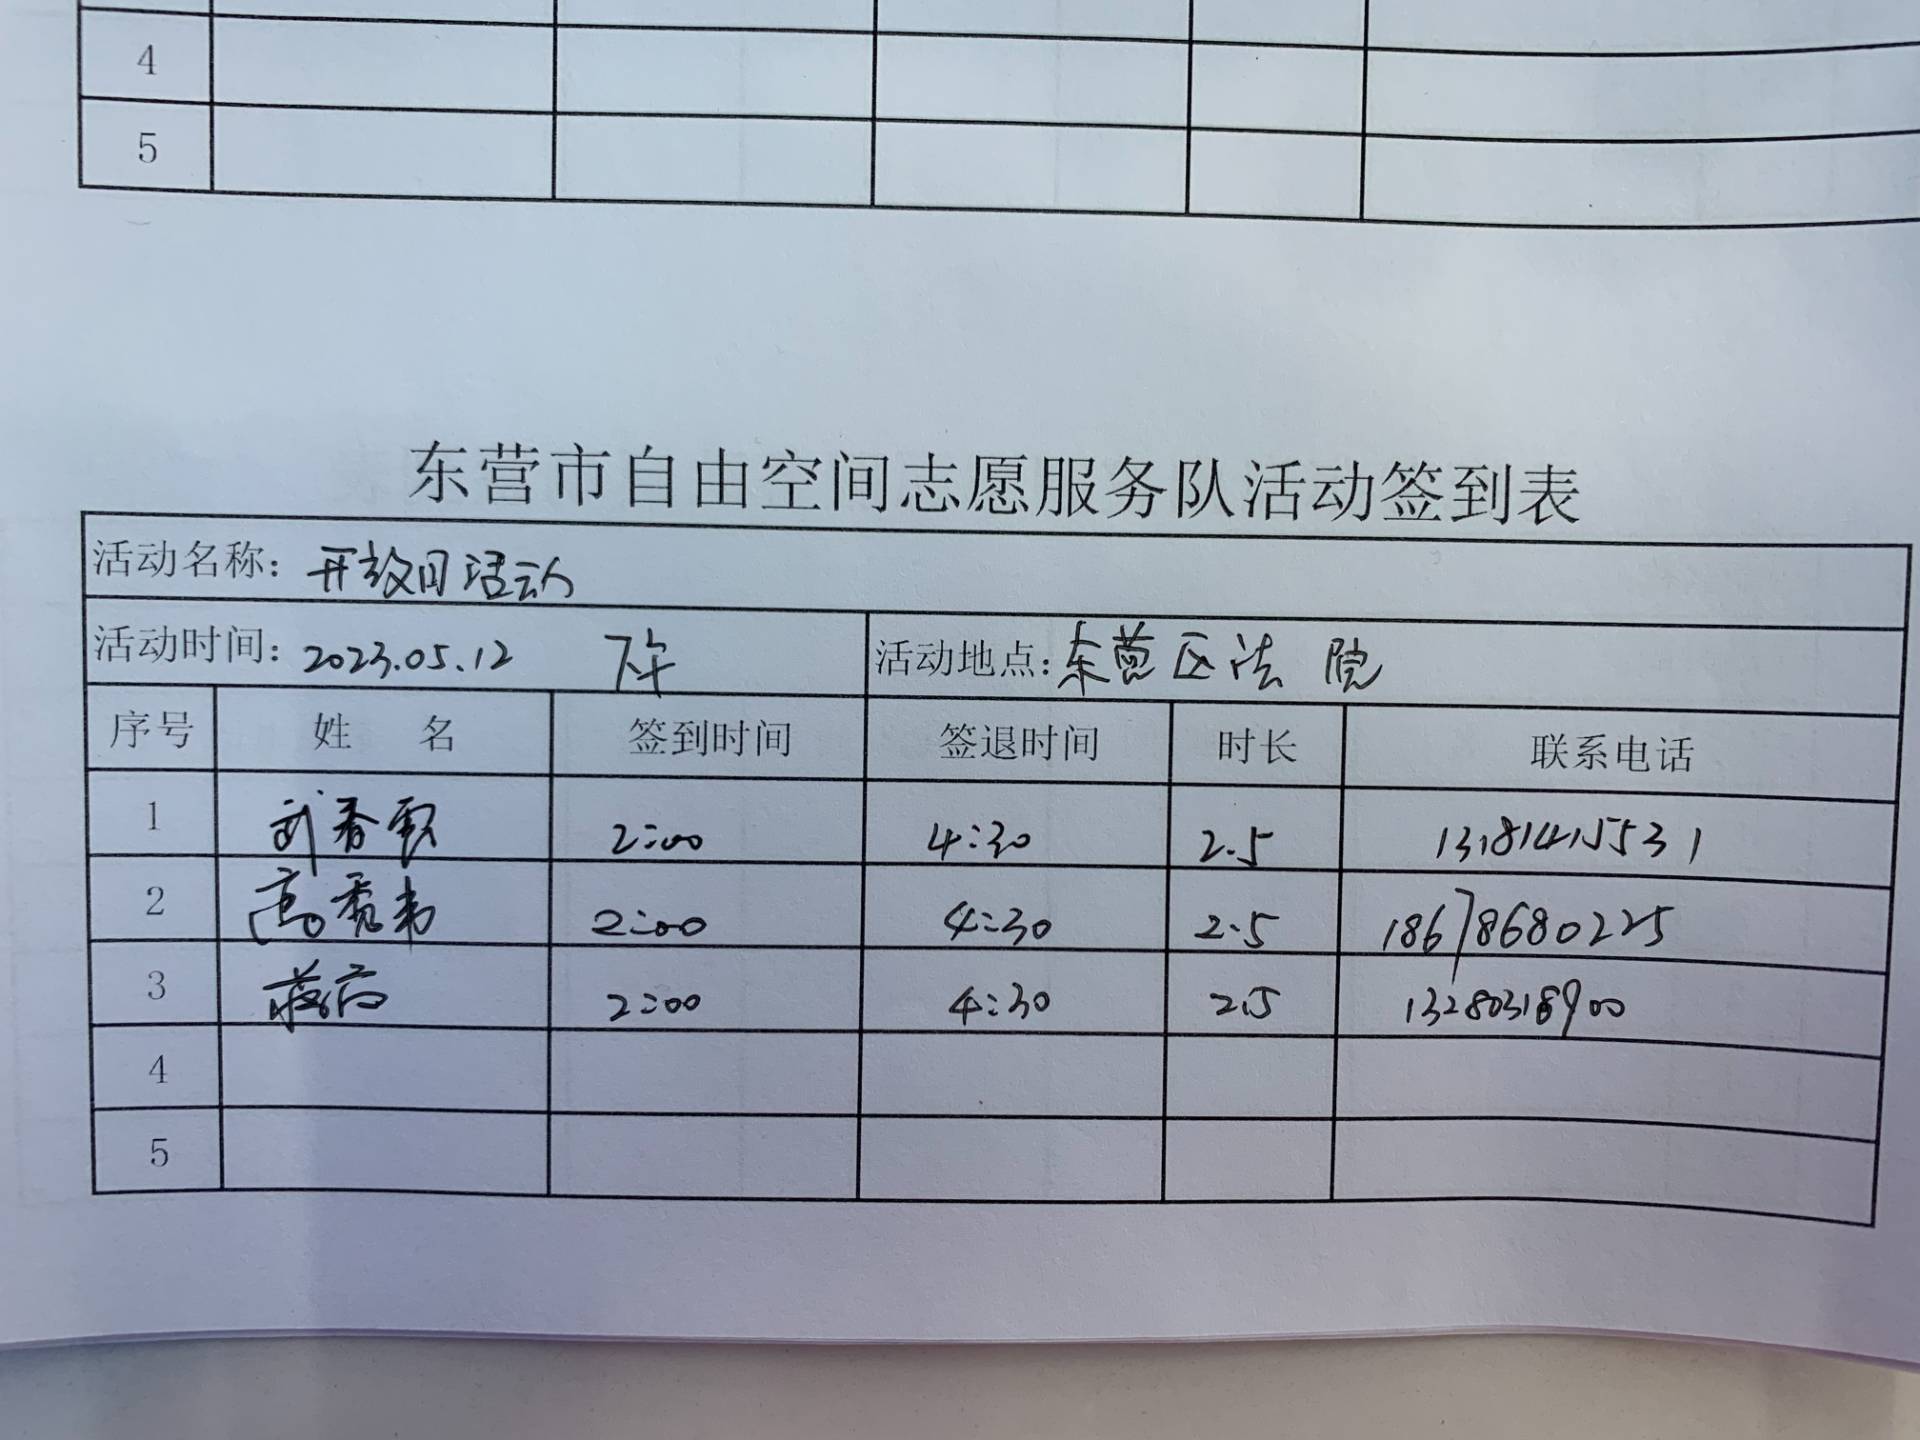 4
5
东营市自由空间志愿服务队活动签到表
活动名称: 开放日活动
活动时间: 2023.05.12 下午 活动地点: 东营区法院
序号 姓 名 签到时间 签退时间 时长 联系电话
1 2:00 4:30 2.5 13181415531
2 高秀韦 2:00 4:30 2.5 18678680225
3 2:00 4:30 2.5 13280318900
4
5